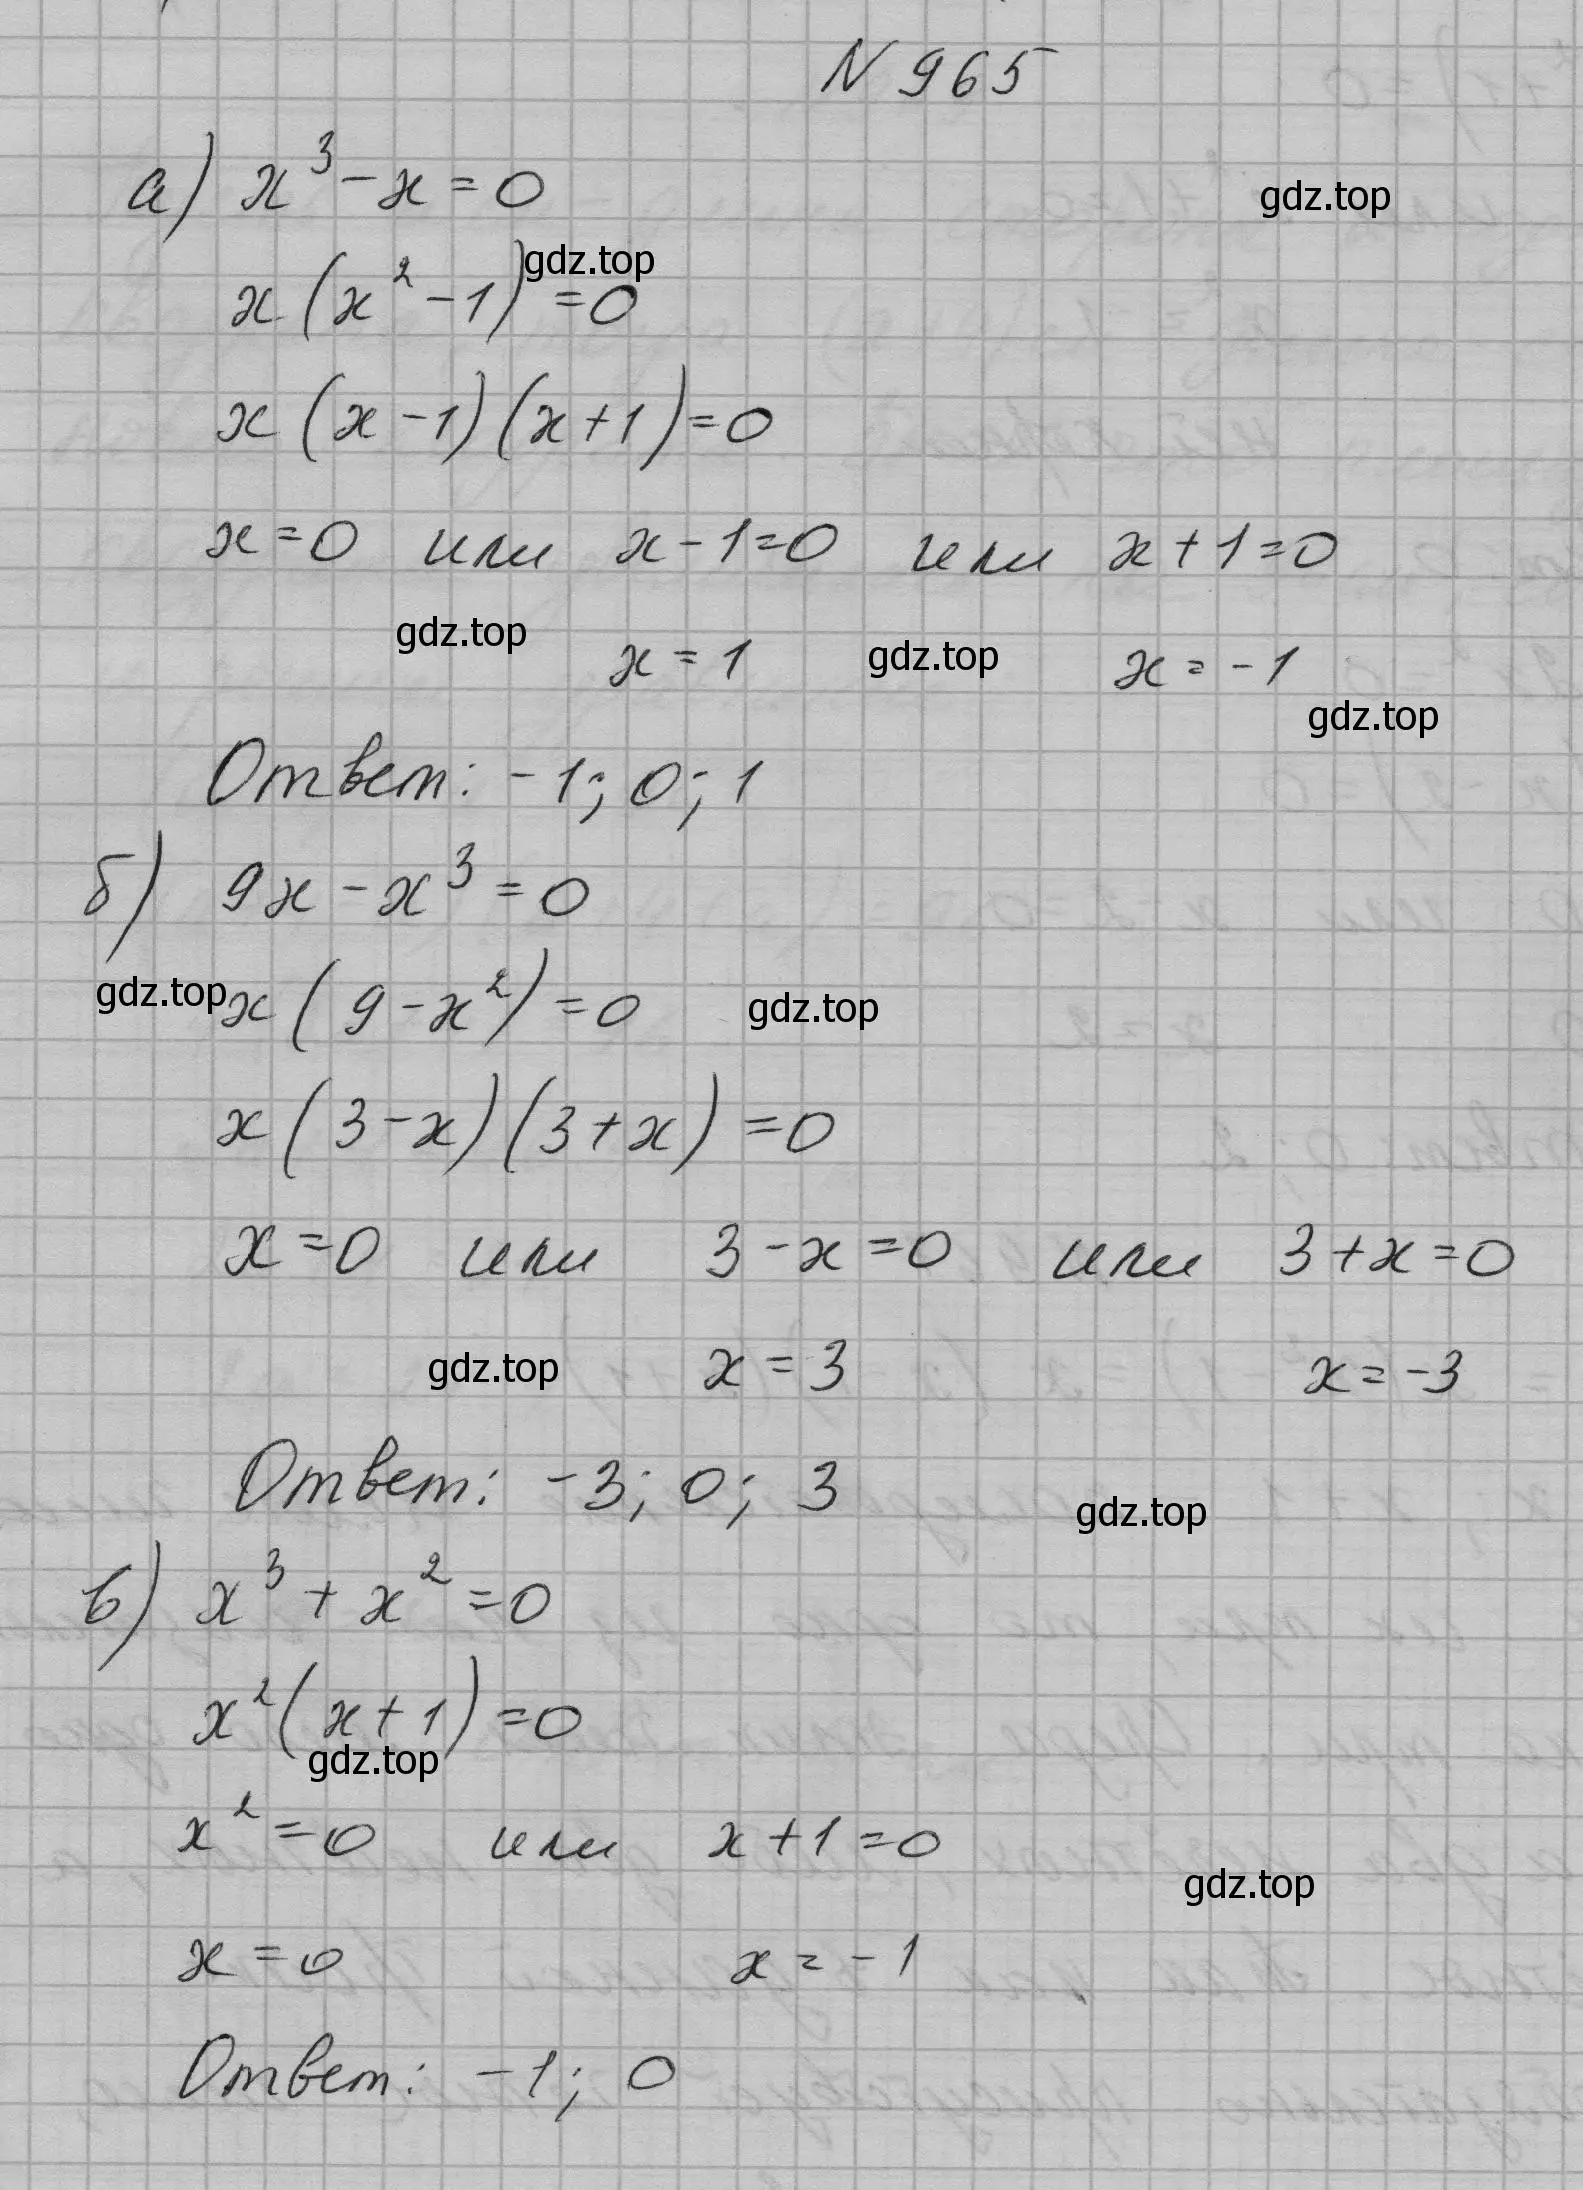 N 965
а) x³ - x = 0
gdz.top
x (x² - 1) = 0
gdz.top
x (x - 1) (x + 1) = 0
x = 0 или x - 1 = 0 или x + 1 = 0
gdz.top
x = 1
gdz.top
x = -1
gdz.top
Ответ: -1; 0; 1
б) 9x - x³ = 0
gdz.top
x (9 - x²) = 0
gdz.top
x (3 - x) (3 + x) = 0
x = 0 или 3 - x = 0 или 3 + x = 0
gdz.top
x = 3
x = -3
Ответ: -3; 0; 3
gdz.top
в) x³ + x² = 0
x² (x + 1) = 0
gdz.top
x² = 0 или x + 1 = 0
gdz.top
x = 0
x = -1
Ответ: -1; 0